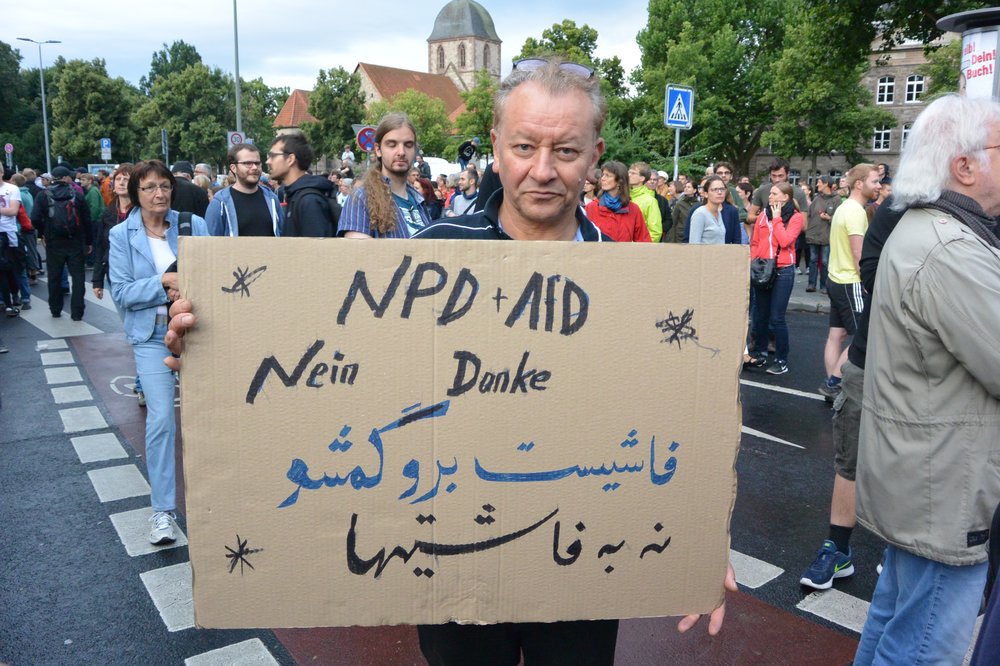 NPD + AfD
Nein Danke
فاشیست برو گمشو
نه به فاشیتها
Dein!
Buch!